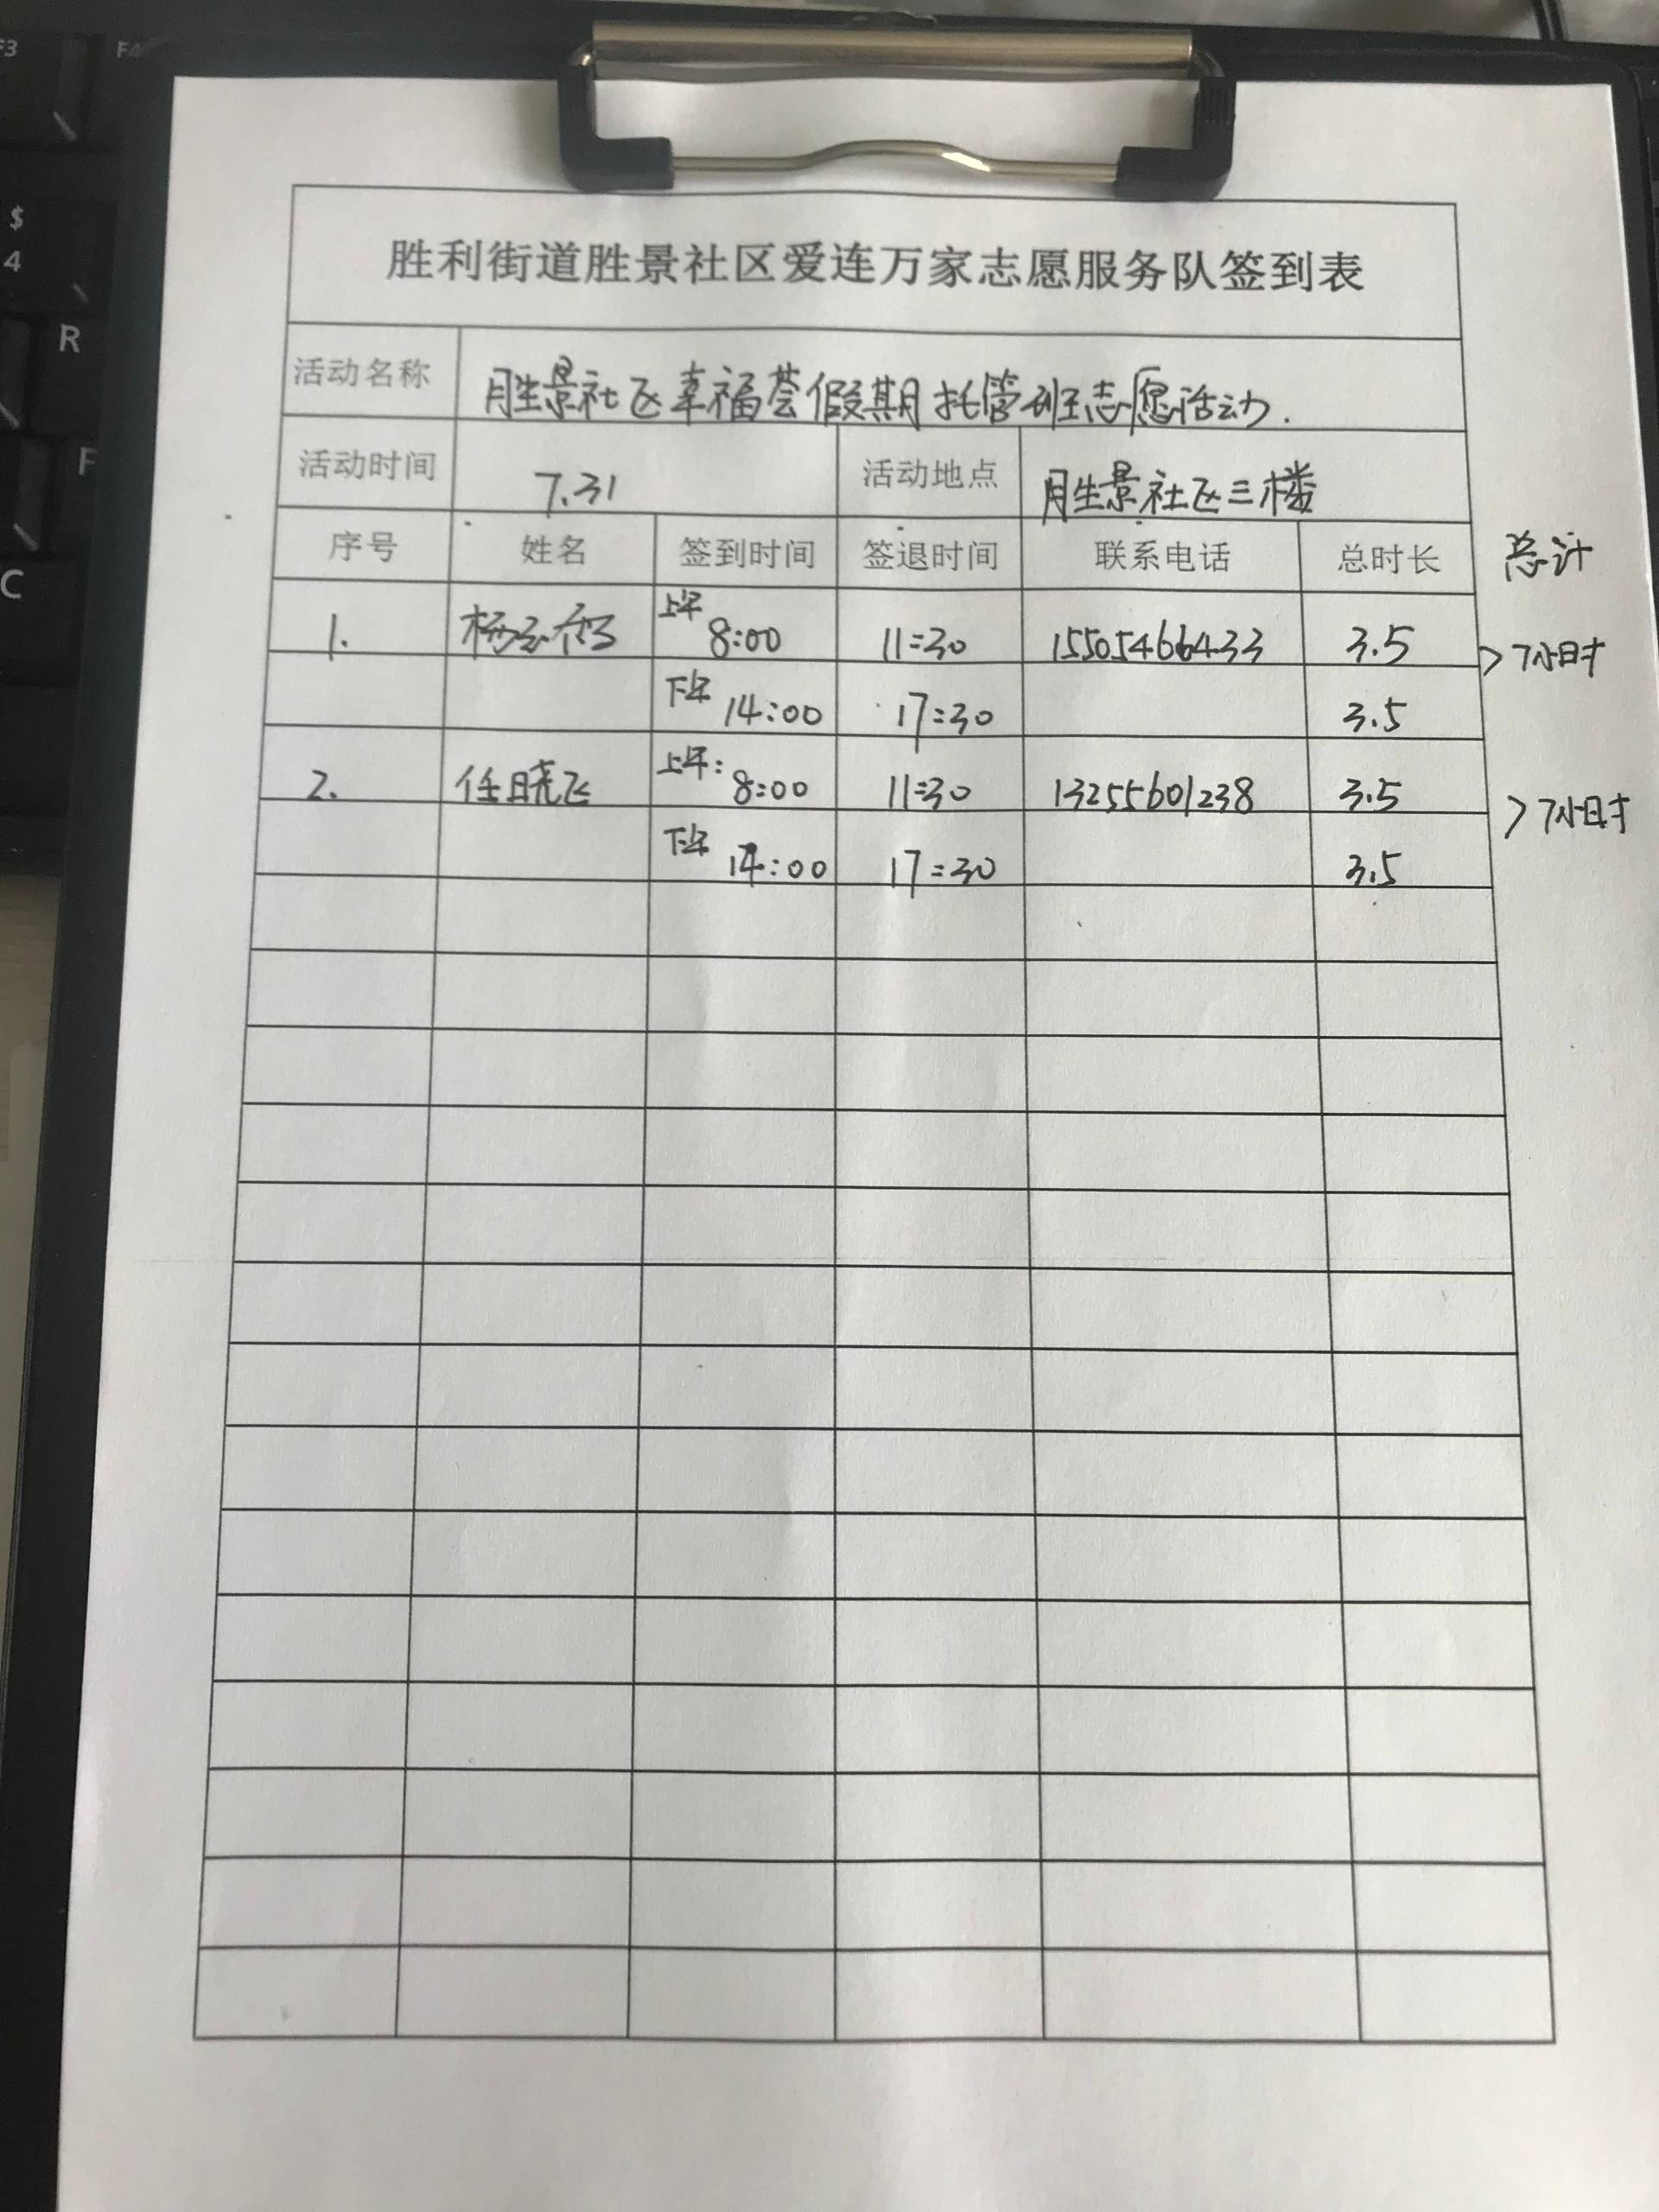 F3 F4
$
4
R
F
C
胜利街道胜景社区爱连万家志愿服务队签到表
活动名称 胜景社区幸福荟假期托管班志愿活动.
活动时间 7.31 活动地点 胜景社区三楼
序号 姓名 签到时间 签退时间 联系电话 总时长 总计
1. 上午 8:00 11:30 15505466433 3.5 > 7小时
下午 14:00 17:30 3.5
2. 任晓飞 上午: 8:00 11:30 13255601238 3.5 > 7小时
下午 14:00 17:30 3.5